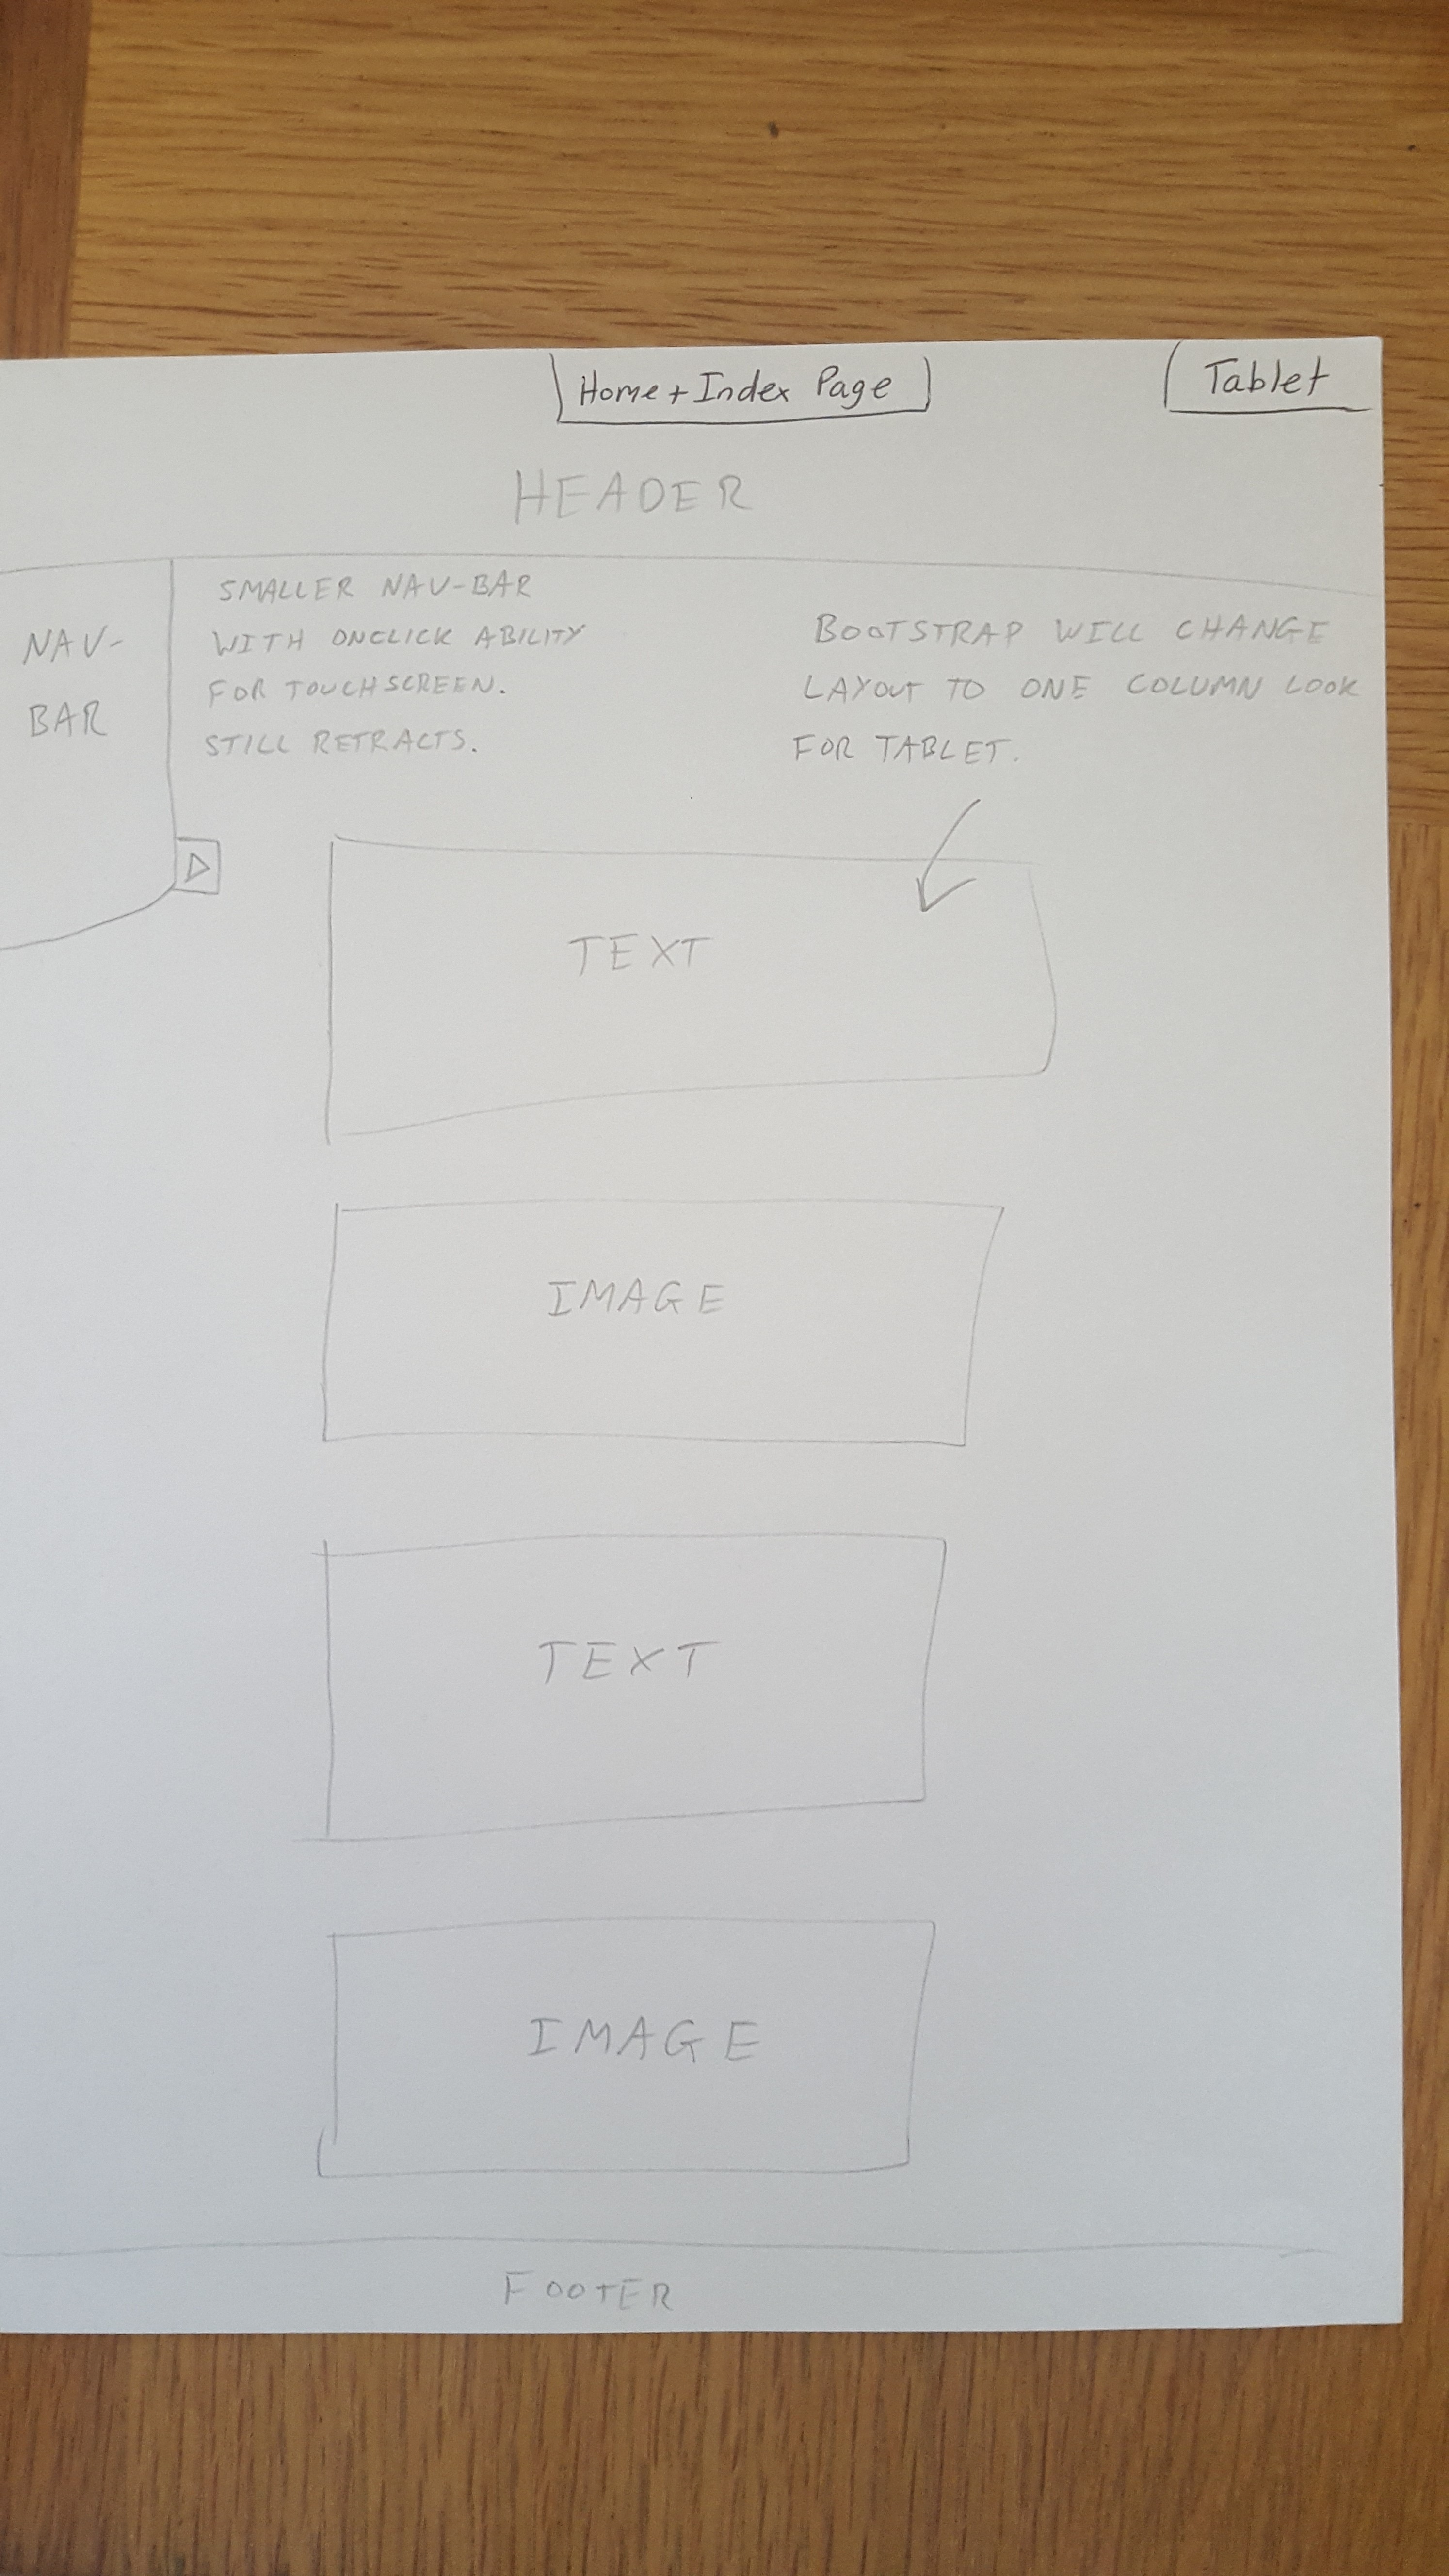 Home + Index Page
Tablet
HEADER
NAV-
BAR
SMALLER NAV-BAR
WITH ONCLICK ABILITY
FOR TOUCHSCREEN.
STILL RETRACTS.
BOOTSTRAP WILL CHANGE
LAYOUT TO ONE COLUMN LOOK
FOR TABLET.
TEXT
IMAGE
TEXT
IMAGE
FOOTER